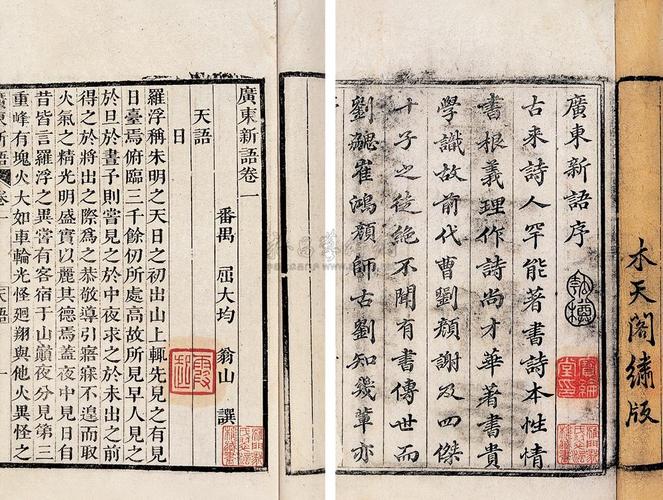 木天閣繡版
廣東新語序
古來詩人罕能著書詩本性情
書根義理作詩尚才華著書貴
學識故前代曹劉顏謝及四傑
十子之徒絕不聞有書傳世而
劉勰崔鴻顏師古劉知幾輩亦
廣東新語卷一
番禺 屈大均 翁山 撰
天語
日
羅浮稱朱明之天日之初出山上輒先見之有見
日臺焉俯臨三千餘仞所處高故所見早人見之
於旦於晝子則嘗見之於中夜求之於未出之前
得之於將出之際為之恭敬導引寤寐不遑而取
火氣之精光明盛實以麗其德焉蓋夜中見日自
昔皆言羅浮之異嘗有客宿于山巔夜分見第三
重峰有塊火大如車輪光怪迴翔與他火異怪之
廣東新語 卷一 天語 一